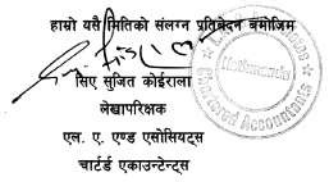 हाम्रो यसै मितिको संलग्न प्रतिवेदन बमोजिम
सिए सुजित कोईराला
लेखापरिक्षक
एल. ए. एण्ड एसोसियट्स
चार्टर्ड एकाउन्टेन्ट्स
Kathmandu
Chartered Accountants